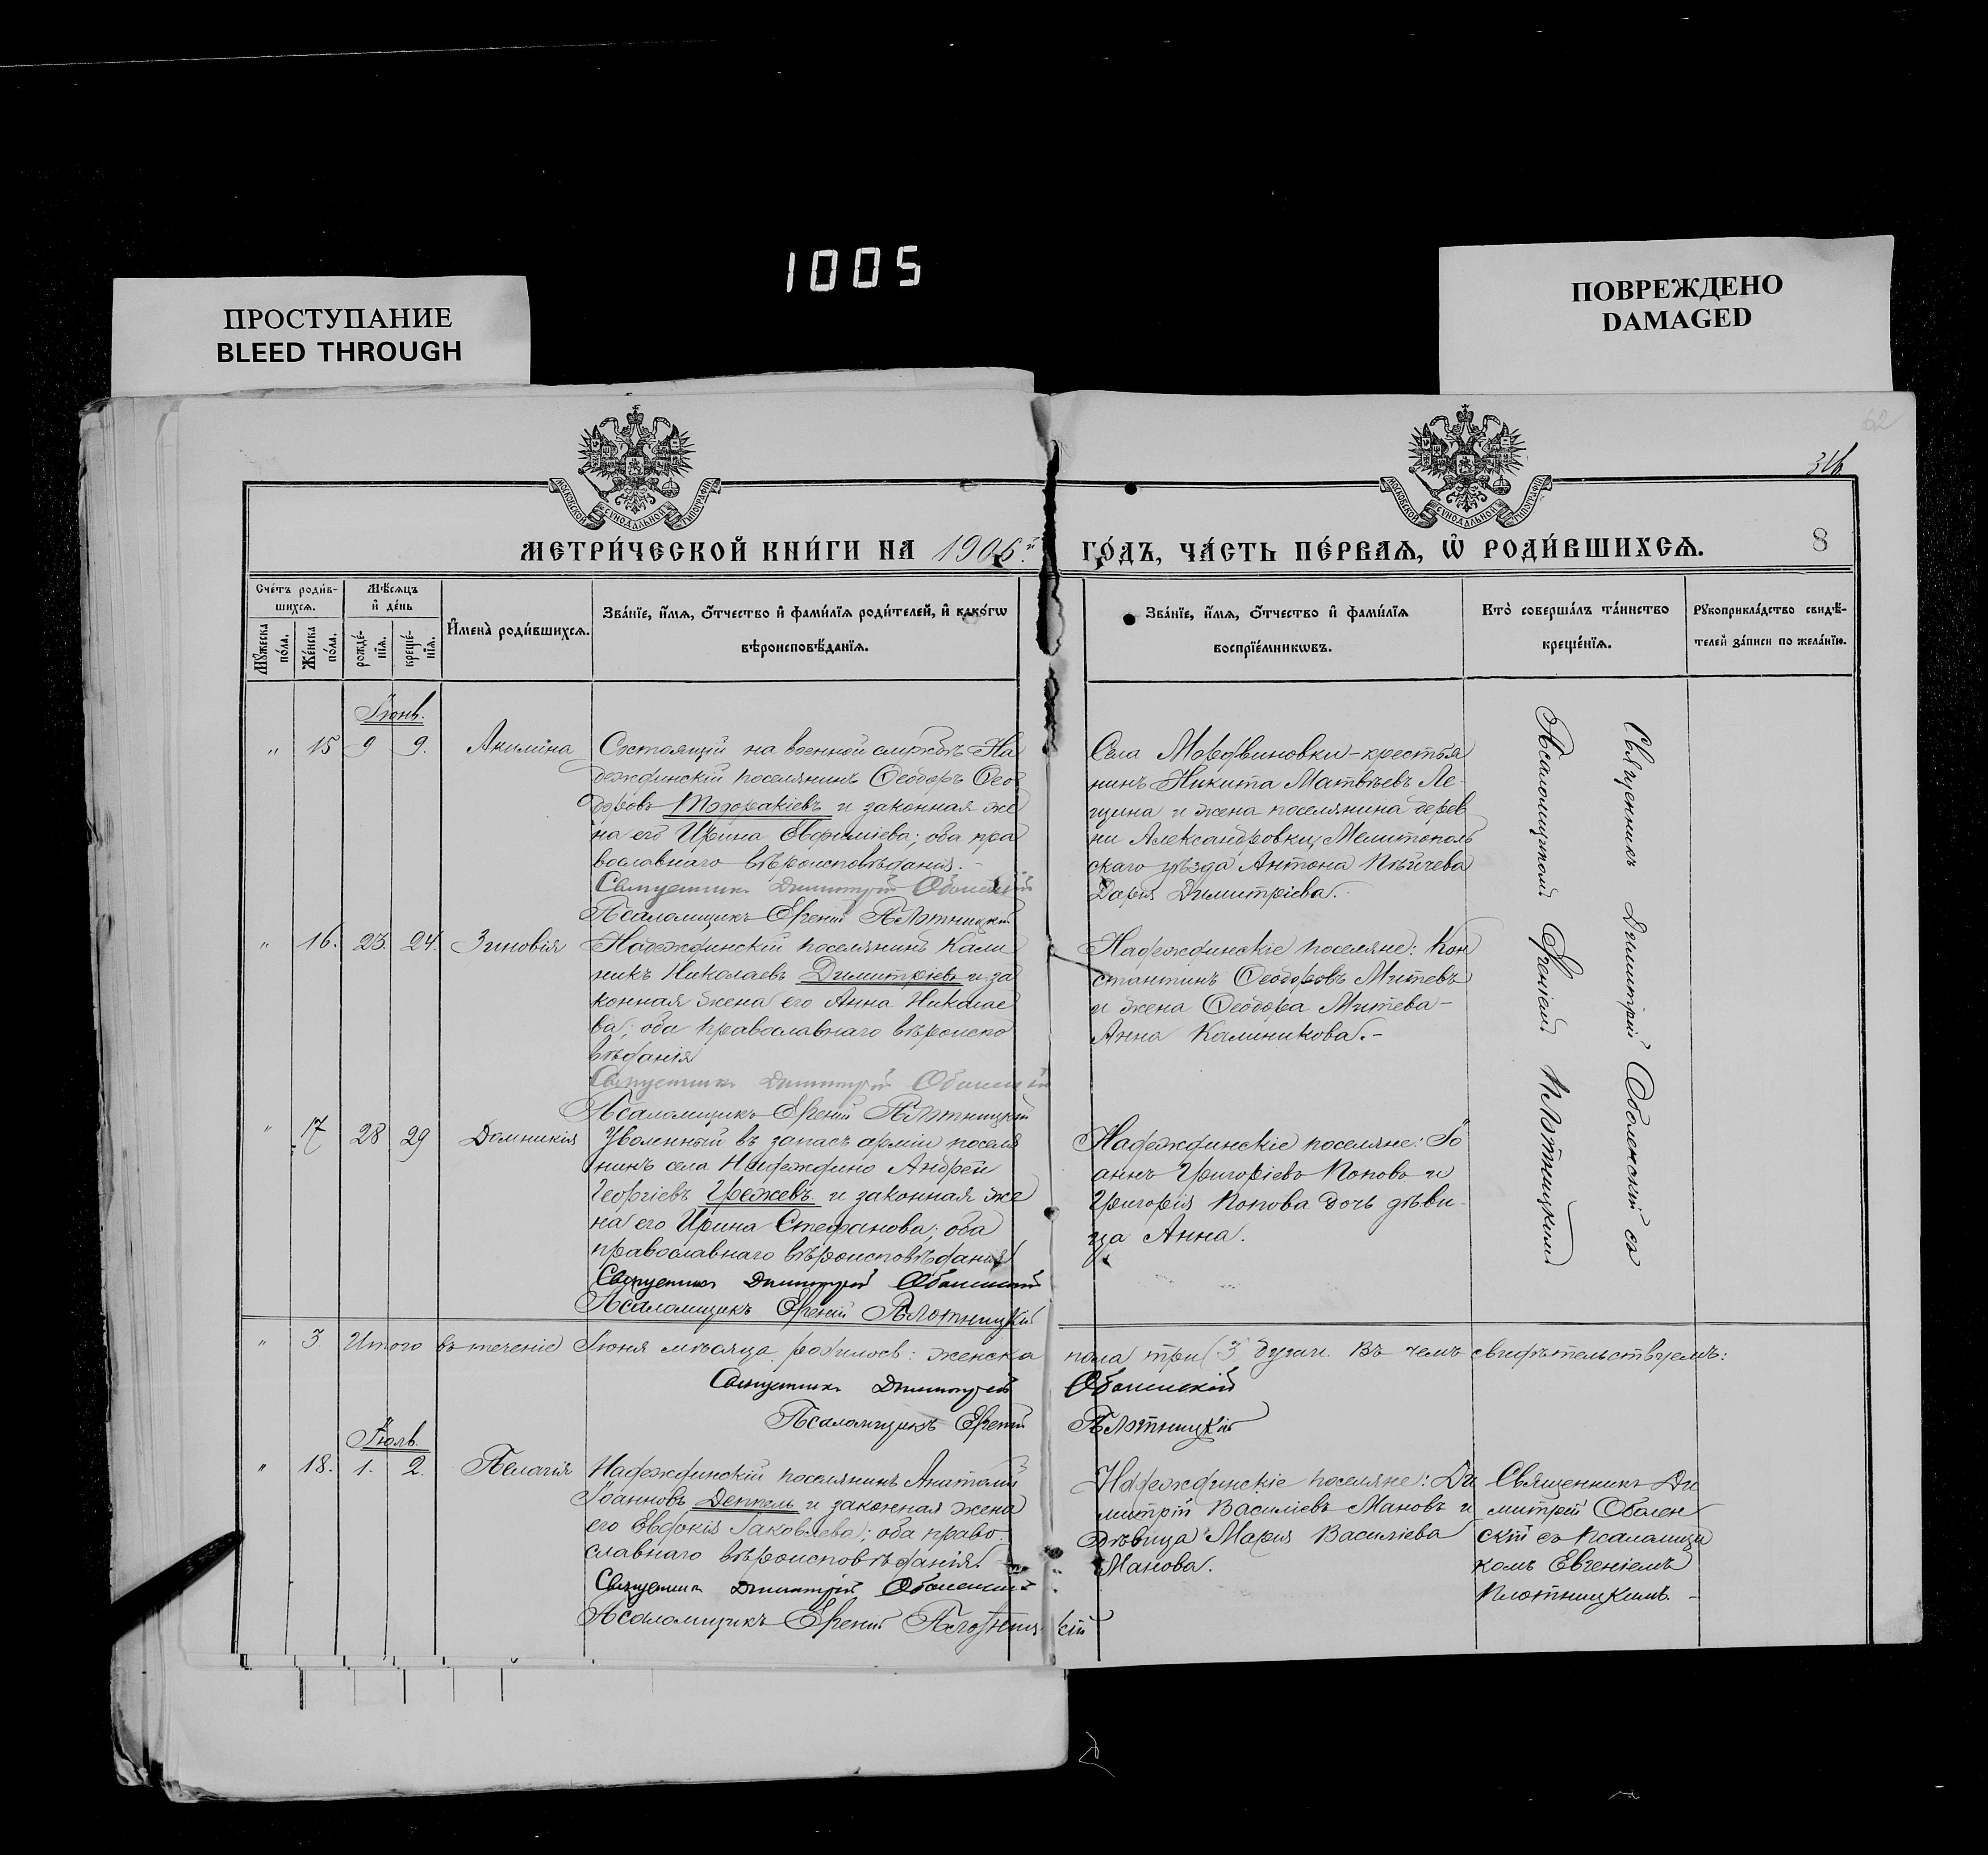 1005
ПРОСТУПАНИЕ
BLEED THROUGH
ПОВРЕЖДЕНО
DAMAGED
62
МОСКОВСКОЙ СѴНОДАЛЬНОЙ ТИПОГРАФІИ
МОСКОВСКОЙ СѴНОДАЛЬНОЙ ТИПОГРАФІИ
МЕТРИ́ЧЕСКОЙ КНИ́ГИ НА 1906й
ГО́ДЪ, ЧА́СТЬ ПЕ́РВАѦ, Ѽ РОДИ́ВШИХСѦ.
8
Сче́тъ роди́в-
шихсѧ.
Мѹ́жеска по́ла.
Же́нска по́ла.
Мѣ́сѧцъ
и҆ де́нь
рожде́-
нїѧ.
креще́-
нїѧ.
И҆мена̀ роди́вшихсѧ.
Зва́нїе, и҆́мѧ, ѻ҆́тчество и҆ фами́лїѧ роди́телей, и҆ како́гѡ
вѣроисповѣ́данїѧ.
Зва́нїе, и҆́мѧ, ѻ҆́тчество и҆ фами́лїѧ
воспрїе́мникѡвъ.
Кто̀ соверша́лъ та́инство
креще́нїѧ.
Рѹкоприкла́дство свидѣ́-
телей за́писи по жела́нїю.
Іюнь.
" 15 9 9. Акилина
Состоящій на военной службѣ На
деждинскій поселянинъ Ѳеодоръ Ѳео
доровъ и законная же
на его Ирина Евфиміева; оба пра
вославнаго вѣроисповѣданія.-
Священникъ Димитрій Оболенскій
Псаломщикъ Евгеній Плотницкій
Села Мордвиновки - крестья
нинъ Никита Матвѣевъ Ле-
щина и жена поселянина дерев
ни Александровки, Мелитополь
скаго уѣзда Антона
Дарія Димитріева.
" 16. 23. 24. Зиновія
Надеждинскій поселянинъ Кали
никъ Николаевъ Димитріевъ и за
конная жена его Анна Николае
ва; оба православнаго вѣроиспо
вѣданія
Священникъ Димитрій Оболенскій
Псаломщикъ Евгеній Плотницкій
Надеждинскіе поселяне: Кон
стантинъ Ѳеодоровъ Митевъ
и жена Ѳеодора Митева -
Анна Калиникова.-
" 17 28 29 Домникія
Уволенный въ запасъ арміи поселя
нинъ села Надеждино Андрей
Георгіевъ Грежевъ и законная же
на его Ирина Стефанова; оба
православнаго вѣроисповѣданія
Священникъ Димитрій Оболенскій
Псаломщикъ Евгеній Плотницкій
Надеждинскіе поселяне: Іо
аннъ Григоріевъ Поповъ и
Григорія Попова дочь дѣви-
ца Анна.
Священникъ Димитрій Оболенскій съ
Псаломщикомъ Евгеніемъ Плотницкимъ
" 3 Итого въ теченіе Іюня мѣсяца родилось: женска пола три (3) души. Въ чемъ свидѣтельствуемъ:
Священникъ Димитрій Оболенскій
Псаломщикъ Евгеній Плотницкій
Іюль.
" 18. 1. 2. Пелагія
Надеждинскій поселянинъ Анатолій
Іоанновъ Деппель и законная жена
его Евдокія Іаковлева; оба право
славнаго вѣроисповѣданія.
Священникъ Димитрій Оболенскій
Псаломщикъ Евгеній Плотницкій
Надеждинскіе поселяне: Ди
митрій Василіевъ Мановъ и
дѣвица Марія Василіева
Манова.
Священникъ Ди
митрій Оболен
скій съ Псаломщи
комъ Евгеніемъ
Плотницкимъ.-